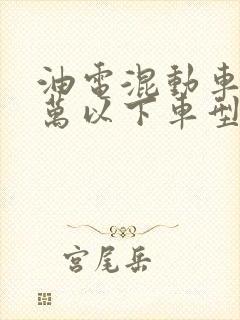 油電混動車
萬以下車型
宮尾岳